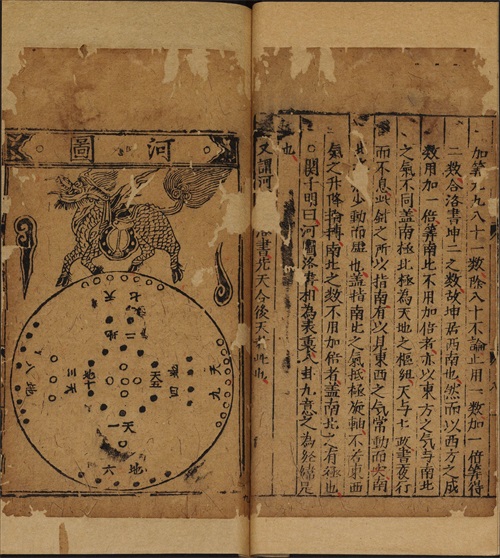 加筭九九八十一數除八十不論止用一數加一倍筭得
二數合洛書坤二之數故坤居西南也然而以西方之成
數用加一倍筭南北不用加倍者亦以東方之氣与南北
之氣不同盖南極北極為天地之樞紐天与七政晝夜行
而不息此針之所以指南有以見東西之氣常動而
少動而 也盖指南北之氣抵極旋軸不若東西
氣之升降 南北之數不用加倍者盖南北之有極也
關子明曰河圖洛書相為表裏八卦九章 之為經緯是
也
又謂河 書先天今後天 也
河圖
天七
地二
天三
地八
天五
地十
地四
天九
天一
地六